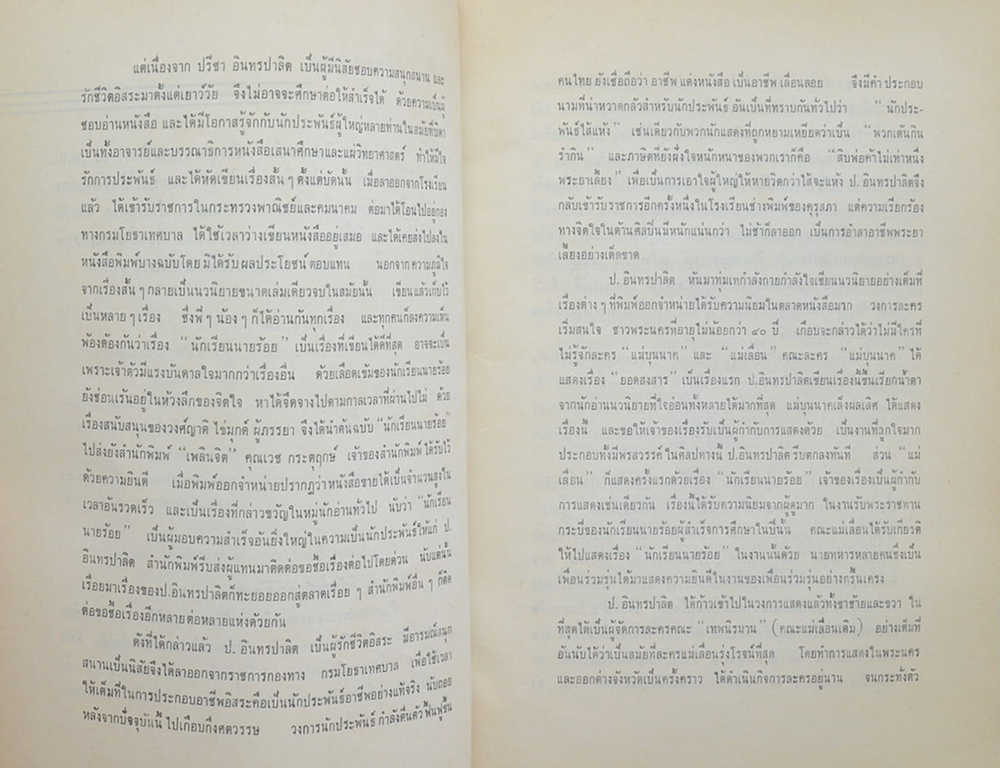 แต่เนื่องจาก ปรีชา อินทรปาลิต เป็นผู้มีนิสัยชอบความสนุกสนาน และ
รักชีวิตอิสระมาตั้งแต่เยาว์วัย จึงไม่อาจจะศึกษาต่อให้สำเร็จได้ ด้วยความเป็นผู้
ชอบอ่านหนังสือ และได้มีโอกาสรู้จักกับนักประพันธ์ผู้ใหญ่หลายท่านในสมัยที่บิดา
เป็นทั้งอาจารย์และบรรณาธิการหนังสือเสนาศึกษาและแผ่วิทยาศาสตร์ ทำให้มีใจ
รักการประพันธ์ และได้หัดเขียนเรื่องสั้น ๆ ตั้งแต่บัดนั้น เมื่อลาออกจากโรงเรียน
แล้ว ได้เข้ารับราชการในกระทรวงพาณิชย์และคมนาคม ต่อมาได้โอนไปอยู่กอง
ทางกรมโยธาเทศบาล ได้ใช้เวลาว่างเขียนหนังสืออยู่เสมอ และได้เคยส่งไปลงใน
หนังสือพิมพ์บางฉบับโดย มิได้รับ ผลประโยชน์ ตอบแทน นอกจาก ความภูมิใจ
จากเรื่องสั้น ๆ กลายเป็นนวนิยายขนาดเล่มเดียวจบในสมัยนั้น เขียนแล้วเก็บไว้
เป็นหลาย ๆ เรื่อง ซึ่งพี่ ๆ น้อง ๆ ก็ได้อ่านกันทุกเรื่อง และทุกคนก็ลงความเห็น
พ้องต้องกันว่าเรื่อง “นักเรียนนายร้อย” เป็นเรื่องที่เขียนได้ดีที่สุด อาจจะเป็น
เพราะเจ้าตัวมีแรงบันดาลใจมากกว่าเรื่องอื่น ด้วยเลือดเข้มของนักเรียนนายร้อย
ยังซ่อนเร้นอยู่ในห้วงลึกของจิตใจ หาได้จืดจางไปตามกาลเวลาที่ผ่านไปไม่ ด้วย
เรื่องสนับสนุนของวงศ์ญาติ ไข่มุกด์ ผู้ภรรยา จึงได้นำต้นฉบับ “นักเรียนนายร้อย”
ไปส่งยังสำนักพิมพ์ “เพลินจิต” คุณเวช กระตุฤกษ์ เจ้าของสำนักพิมพ์ได้รับไว้
ด้วยความยินดี เมื่อพิมพ์ออกจำหน่ายปรากฏว่าหนังสือขายได้เป็นจำนวนสูงใน
เวลาอันรวดเร็ว และเป็นเรื่องที่กล่าวขวัญในหมู่นักอ่านทั่วไป นับว่า “นักเรียน
นายร้อย” เป็นผู้มอบความสำเร็จอันยิ่งใหญ่ในความเป็นนักประพันธ์ให้แก่ ป.
อินทรปาลิต สำนักพิมพ์รีบส่งผู้แทนมาติดต่อขอซื้อเรื่องต่อไปโดยด่วน นับแต่นั้น
เรื่อยมาเรื่องของป.อินทรปาลิตก็ทะยอยออกสู่ตลาดเรื่อย ๆ สำนักพิมพ์อื่น ๆ ก็ติด
ต่อขอซื้อเรื่องอีกหลายต่อหลายแห่งด้วยกัน
ดังที่ได้กล่าวแล้ว ป. อินทรปาลิต เป็นผู้รักชีวิตอิสระ มีอารมณ์สนุก
สนานเป็นนิสัยจึงได้ลาออกจากราชการกองทาง กรมโยธาเทศบาล เพื่อใช้เวลา
ให้เต็มที่ในการประกอบอาชีพอิสระคือเป็นนักประพันธ์อาชีพอย่างแท้จริง นับถอย
หลังจากปัจจุบันนี้ ไปเกือบกึ่งศตวรรษ วงการนักประพันธ์ กำลังตื่นตัว ฟื้นฟูขึ้น
คนไทย ยังเชื่อถือว่า อาชีพ แต่งหนังสือ เป็นอาชีพ เลื่อนลอย จึงมีคำ ประกอบ
นามที่น่าหวาดกลัวสำหรับนักประพันธ์ อันเป็นที่ทราบกันทั่วไปว่า “นักประ-
พันธ์ไส้แห้ง” เช่นเดียวกับพวกนักแสดงที่ถูกหยามเหยียดว่าเป็น “พวกเต้นกิน
รำกิน” และภาษิตที่ยังฝั่งใจหนักหนาของพวกเราก็คือ “สิบพ่อค้าไม่เท่าหนึ่ง
พระยาเลี้ยง” เพื่อเป็นการเอาใจผู้ใหญ่ให้หายวิตกว่าไส้จะแห้ง ป. อินทรปาลิตจึง
กลับเข้ารับราชการอีกครั้งหนึ่งในโรงเรียนช่างพิมพ์ของคุรุสภา แต่ความเรียกร้อง
ทางจิตใจในด้านศิลปินมีหนักแน่นกว่า ไม่ช้าก็ลาออก เป็นการอำลาอาชีพพระยา
เลี้ยงอย่างเด็ดขาด
ป. อินทรปาลิต หันมาทุ่มเทกำลังกายกำลังใจเขียนนวนิยายอย่างเต็มที่
เรื่องต่าง ๆ ที่พิมพ์ออกจำหน่ายได้รับความนิยมในตลาดหนังสือมาก วงการละคร
เริ่มสนใจ ชาวพระนครที่อายุไม่น้อยกว่า ๔๐ ปี เกือบจะกล่าวได้ว่าไม่มีใครที่
ไม่รู้จักละคร “แม่บุนนาค” และ “แม่เลื่อน” คณะละคร “แม่บุนนาค” ได้
แสดงเรื่อง “ยอดสงสาร” เป็นเรื่องแรก ป.อินทรปาลิตเขียนเรื่องนี้ขึ้นเรียกน้ำตา
จากนักอ่านนวนิยายที่ใจอ่อนทั้งหลายได้มากที่สุด แม่บุนนาคเล็งผลเลิศ ได้แสดง
เรื่องนี้ และขอให้เจ้าของเรื่องรับเป็นผู้กำกับการแสดงด้วย เป็นงานที่ถูกใจมาก
ประกอบทั้งมีพรสวรรค์ ในศิลปทางนี้ ป.อินทรปาลิต รีบตกลงทันที ส่วน “แม่
เลื่อน” ก็แสดงครั้งแรกด้วยเรื่อง “นักเรียนนายร้อย” เจ้าของเรื่องเป็นผู้กำกับ
การแสดงเช่นเดียวกัน เรื่องนี้ได้รับความนิยมจากผู้ดูมาก ในงานรับพระราชทาน
กระบี่ของนักเรียนนายร้อยผู้สำเร็จการศึกษาในปีนั้น คณะแม่เลื่อนได้รับเกียรติ
ให้ไปแสดงเรื่อง “นักเรียนนายร้อย” ในงานนั้นด้วย นายทหารหลายคนซึ่งเป็น
เพื่อนร่วมรุ่นได้มาแสดงความยินดีในงานของเพื่อนร่วมรุ่นอย่างครื้นเครง
ป. อินทรปาลิต ได้ก้าวเข้าไปในวงการแสดงแล้วทั้งซ้ายและขวา ใน
ที่สุดได้เป็นผู้จัดการละครคณะ “เทพนิรมาน” (คณะแม่เลื่อนเดิม) อย่างเต็มที่
อันนับได้ว่าเป็นสมัยที่ละครแม่เลื่อนรุ่งโรจน์ที่สุด โดยทำการแสดงในพระนคร
และออกต่างจังหวัดเป็นครั้งคราว ได้ดำเนินกิจการละครอยู่นาน จนกระทั่งตัว